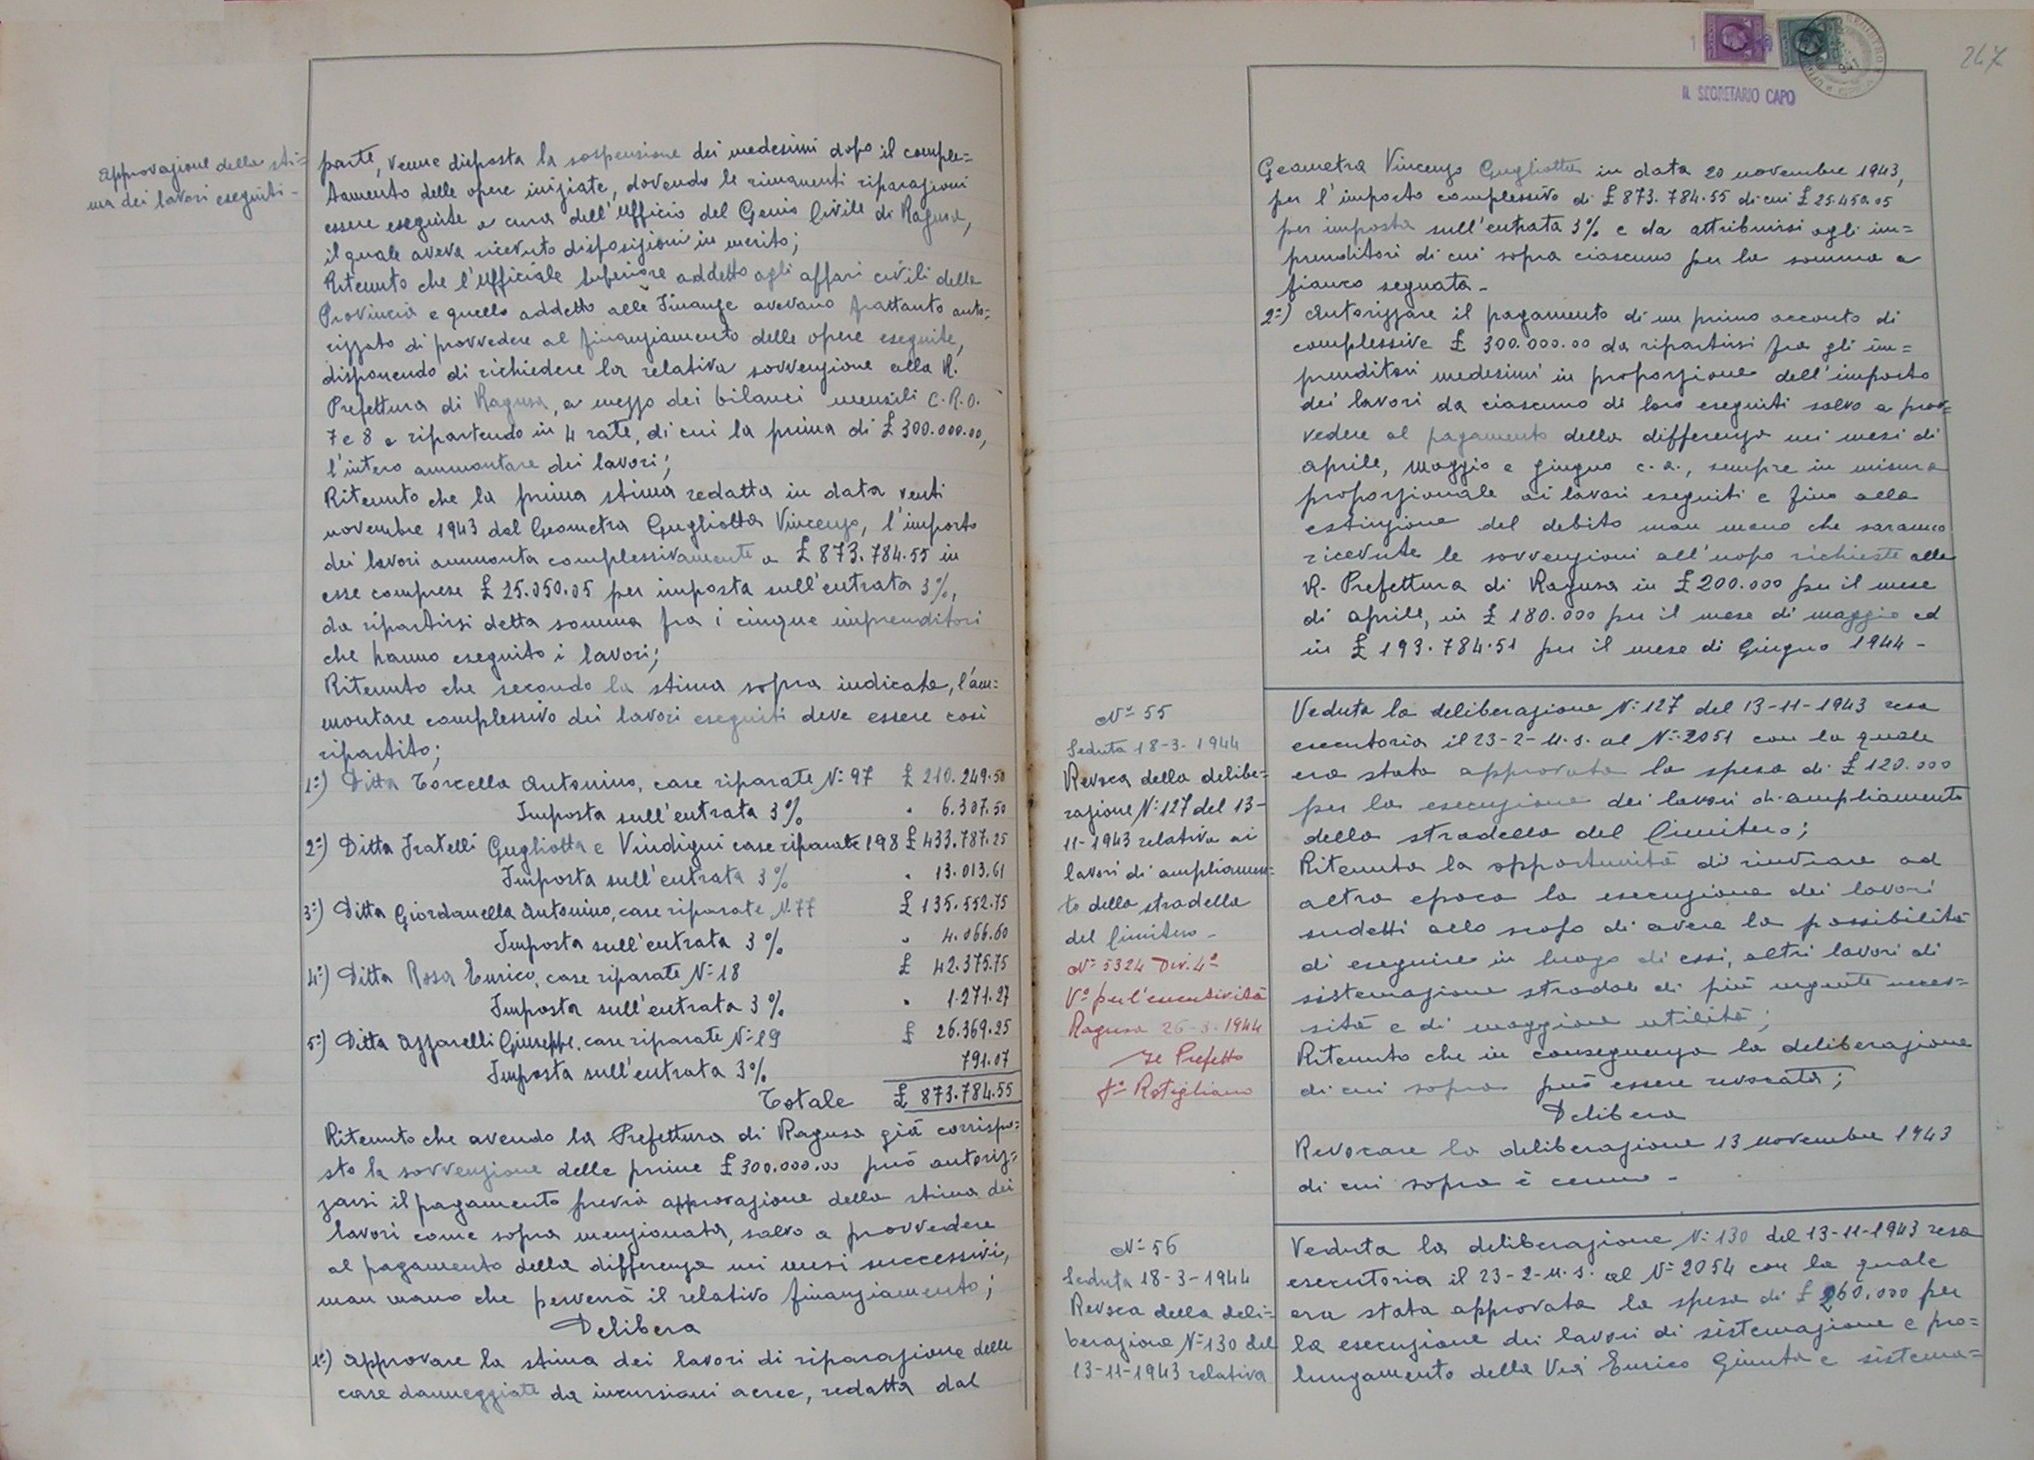 Approvazione della sti=
ma dei lavori eseguiti -
parte, venne disposta la sospensione dei medesimi dopo il comple=
tamento delle opere iniziate, dovendo le rimanenti riparazioni
essere eseguite a cura dell'Ufficio del Genio Civile di Ragusa,
il quale aveva ricevuto disposizioni in merito;
Ritenuto che l'Ufficiale Superiore addetto agli affari civili della
Provincia e quello addetto alle Finanze avevano frattanto auto=
rizzato di provvedere al finanziamento delle opere eseguite,
disponendo di richiedere la relativa sovvenzione alla R.
Prefettura di Ragusa, a mezzo dei bilanci mensili C.R.O.
7 e 8 e ripartendo in 4 rate, di cui la prima di £ 300.000.00,
l'intero ammontare dei lavori;
Ritenuto che la prima stima redatta in data venti
novembre 1943 dal Geometra Gugliotta Vincenzo, l'importo
dei lavori ammonta complessivamente a £ 873.784.55 in
esse comprese £ 25.050.05 per imposta sull'entrata 3%,
da ripartirsi detta somma fra i cinque imprenditori
che hanno eseguito i lavori;
Ritenuto che secondo la stima sopra indicata, l'am=
montare complessivo dei lavori eseguiti deve essere così
ripartito;
1°) Ditta Torcella Antonino, case riparate N° 97 £ 210.249.50
Imposta sull'entrata 3% " 6.307.50
2°) Ditta Fratelli Gugliotta e Vindigni case riparate 198 £ 433.787.25
Imposta sull'entrata 3% " 13.013.61
3°) Ditta Giordanella Antonino, case riparate N. 77 £ 135.552.75
Imposta sull'entrata 3% " 4.066.60
4°) Ditta Rosa Enrico, case riparate N° 18 £ 42.375.75
Imposta sull'entrata 3% " 1.271.27
5°) Ditta Azzarelli Giuseppe, case riparate N° 19 £ 26.369.25
Imposta sull'entrata 3% 791.07
Totale £ 873.784.55
Ritenuto che avendo la Prefettura di Ragusa già corrispo=
sto la sovvenzione delle prime £ 300.000.00 può autoriz=
zarsi il pagamento previa approvazione della stima dei
lavori come sopra menzionata, salvo a provvedere
al pagamento della differenza nei mesi successivi,
man mano che perverrà il relativo finanziamento;
Delibera
1°) Approvare la stima dei lavori di riparazione delle
case danneggiate da incursioni aeree, redatta dal
247
IL SEGRETARIO CAPO
Geometra Vincenzo Gugliotta in data 20 novembre 1943,
per l'importo complessivo di £ 873.784.55 di cui £ 25.450.05
per imposta sull'entrata 3% e da attribuirsi agli im=
prenditori di cui sopra ciascuno per la somma a
fianco segnata -
2°) Autorizzare il pagamento di un primo acconto di
complessive £ 300.000.00 da ripartirsi fra gli im=
prenditori medesimi in proporzione dell'importo
dei lavori da ciascuno di loro eseguiti salvo a prov=
vedere al pagamento della differenza nei mesi di
aprile, maggio e giugno c.a., sempre in misura
proporzionale ai lavori eseguiti e fino alla
estinzione del debito man mano che saranno
ricevute le sovvenzioni all'uopo richieste alla
R. Prefettura di Ragusa in £ 200.000 per il mese
di aprile, in £ 180.000 per il mese di maggio ed
in £ 193.784.51 per il mese di Giugno 1944 -
N° 55
Seduta 18-3-1944
Revoca della delibe=
razione N° 127 del 13-
11-1943 relativa ai
lavori di ampliamen=
to della stradella
del Cimitero -
N° 5324 Div. 4ª
V° per l'esecutività
Ragusa 26-3-1944
Il Prefetto
f° Rotigliano
Veduta la deliberazione N° 127 del 13-11-1943 resa
esecutoria il 23-2-u.s. al N° 2051 con la quale
era stata approvata la spesa di £ 120.000
per la esecuzione dei lavori di ampliamento
della stradella del Cimitero;
Ritenuta la opportunità di rinviare ad
altra epoca la esecuzione dei lavori
sudetti allo scopo di avere la possibilità
di eseguire in luogo di essi, altri lavori di
sistemazione stradale di più urgente neces=
sità e di maggiore utilità;
Ritenuto che in conseguenza la deliberazione
di cui sopra può essere revocata;
Delibera
Revocare la deliberazione 13 novembre 1943
di cui sopra è cenno -
N° 56
Seduta 18-3-1944
Revoca della deli=
berazione N° 130 del
13-11-1943 relativa
Veduta la deliberazione N° 130 del 13-11-1943 resa
esecutoria il 23-2-u.s. al N° 2054 con la quale
era stata approvata la spesa di £ 260.000 per
la esecuzione dei lavori di sistemazione e pro=
lungamento della Via Enrico Giunta e sistema=